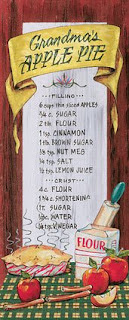 Grandma's
APPLE PIE
FILLING
6 cups thin sliced APPLES
3/4 c. SUGAR
2 tb. FLOUR
1 tsp. CINNAMON
1 tb. BROWN SUGAR
1/8 tsp. NUT MEG
1/4 tsp. SALT
1/2 tsp. LEMON JUICE
CRUST
4 c. FLOUR
1 3/4 c. SHORTENING
1 T. SUGAR
1/2 c. WATER
1 tb. VINEGAR
FLOUR